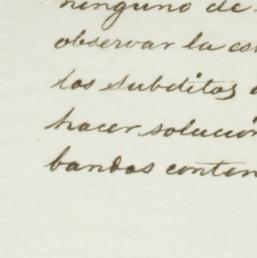 ninguno de
observar la es
los subditos
hacer solución
bandos conten